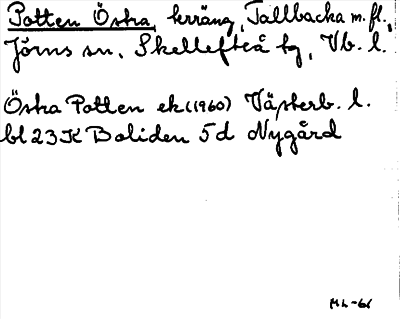 Potten Östra, terräng, Tallbacka m.fl.,
Jörns sn, Skellefteå tg, Vb. l.
Östra Potten ek (1960) Västerb. l.
bl 23K Boliden 5d Nygård
ML-61